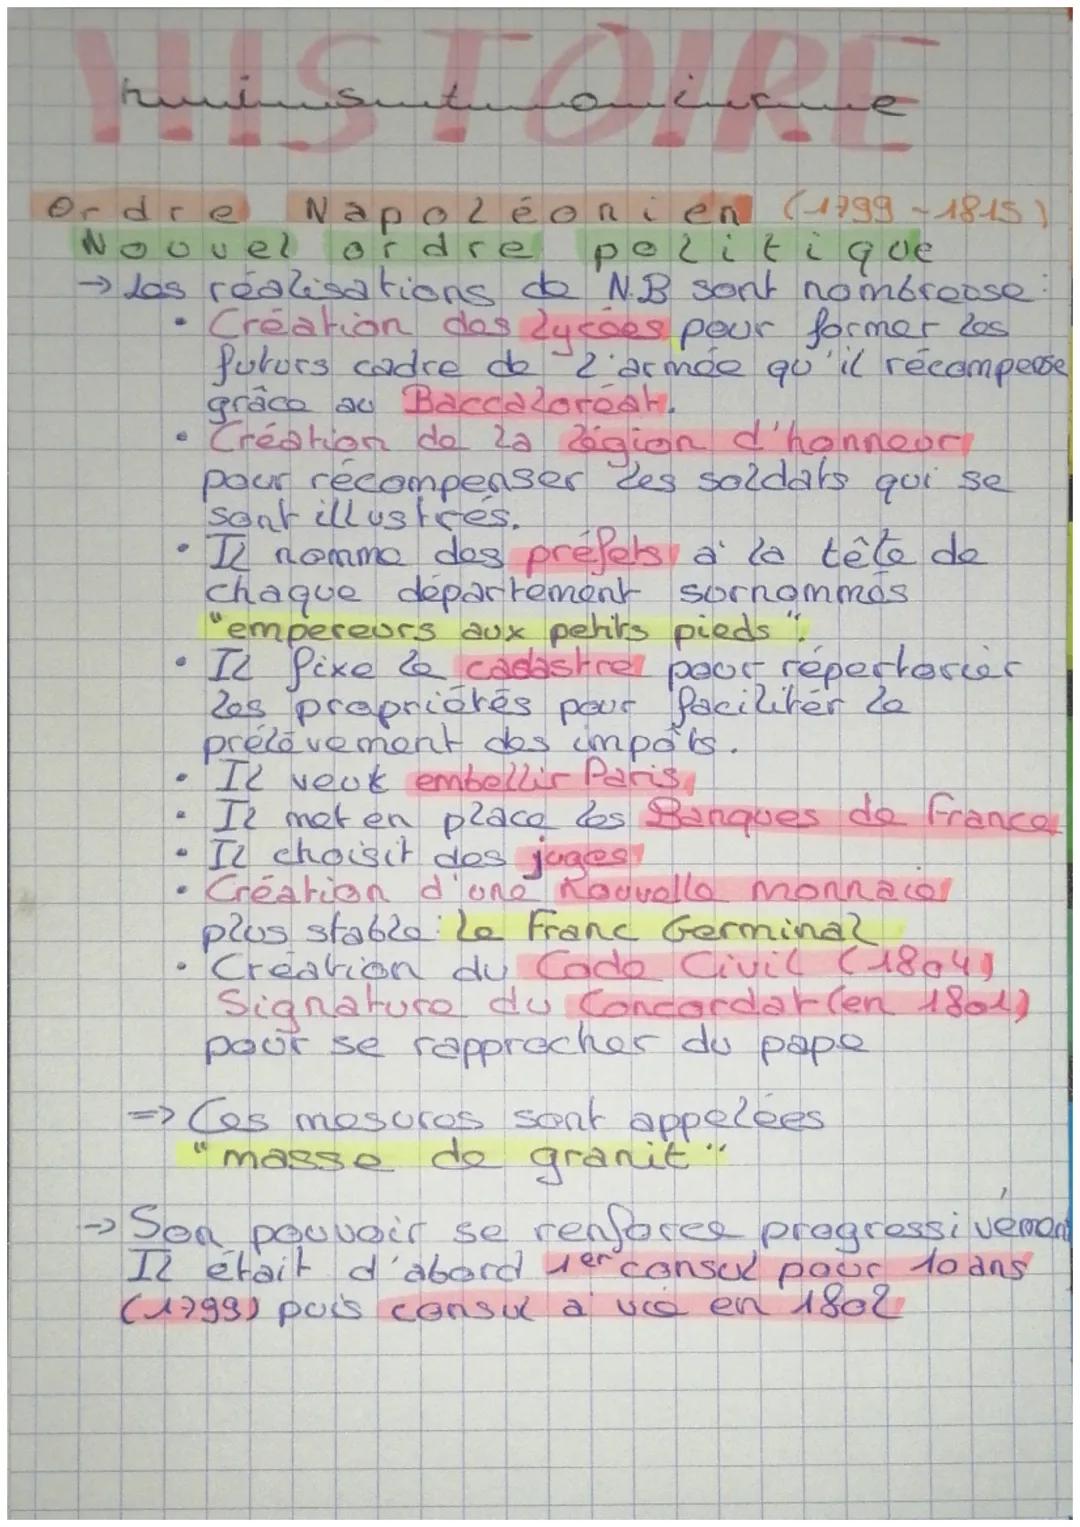 HISTOIRE
histoire
Ordre Napoléonien (1799-1815)
Nouvel ordre politique
→ Les réalisations de N.B sont nombreuse :
• Création des lycées pour former les
futurs cadre de l'armée qu'il récompense
grâce au Baccaloréat.
• Création de la légion d'honneur
pour récompenser les soldats qui se
sont illustrés.
• Il nomme des préfets à la tête de
chaque département surnommés
"empereurs aux petits pieds".
• Il fixe le cadastre pour répertorier
les propriétés pour faciliter le
prélèvement des impôts.
• Il veut embellir Paris
• Il met en place les Banques de France
• Il choisit des juges
• Création d'une nouvelle monnaie
plus stable : le Franc Germinal
• Création du Code Civil (1804)
Signature du Concordat (en 1801)
pour se rapprocher du pape
=> Ces mesures sont appelées
"masse de granit"
→ Son pouvoir se renforce progressivement
Il était d'abord 1er consul pour 10 ans
(1799) puis consul à vie en 1802